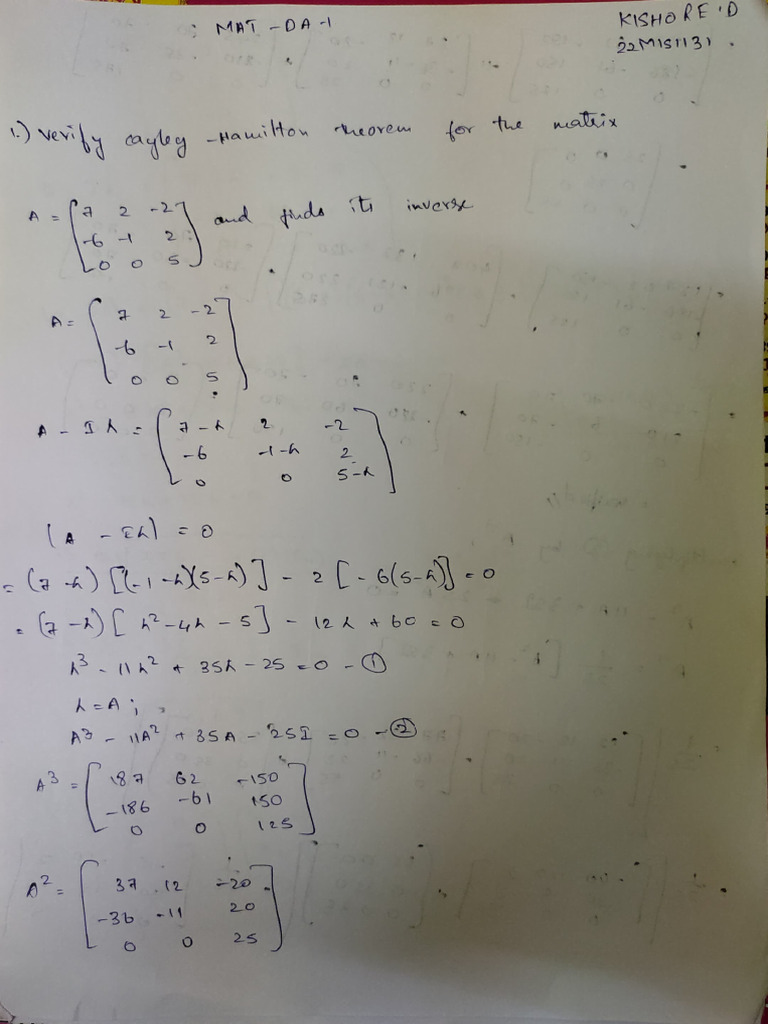 : MAT - DA - 1
KISHORE .D
22MIS1131 .
1.) Verify cayley - Hamilton theorem for the matrix
A = [7 2 -2
-6 -1 2
0 0 5] and finds its inverse
A = [7 2 -2
-6 -1 2
0 0 5]
A - Iλ = [7-λ 2 -2
-6 -1-λ 2
0 0 5-λ]
|A - Iλ| = 0
= (7-λ) [(-1-λ)(5-λ)] - 2 [-6(5-λ)] = 0
= (7-λ) [λ² - 4λ - 5] - 12λ + 60 = 0
λ³ - 11λ² + 35λ - 25 = 0 - ①
λ = A ;
A³ - 11A² + 35A - 25I = 0 - ②
A³ = [187 62 -150
-186 -61 150
0 0 125]
A² = [37 12 -20
-36 -11 20
0 0 25]